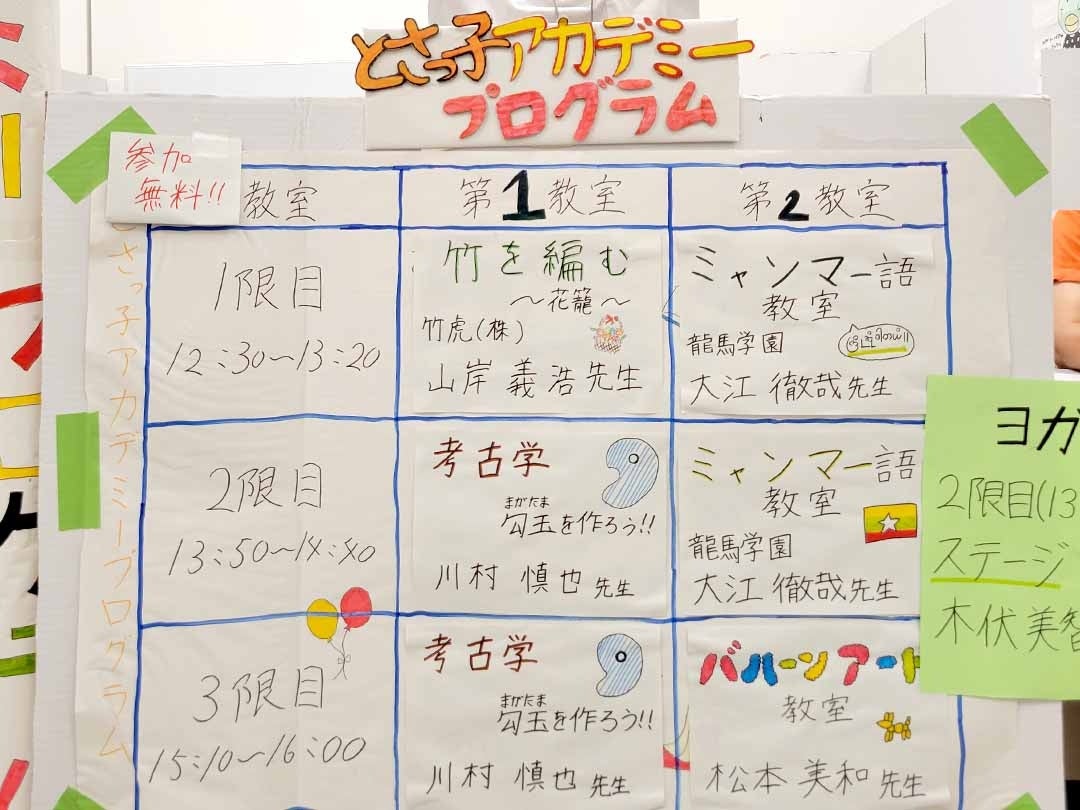 とさっ子アカデミー
プログラム
参加
無料!!
教室
第1教室
第2教室
1限目
12:30〜13:20
竹を編む
〜花籠〜
竹虎(株)
山岸 義浩先生
ミャンマー語
教室
龍馬学園
大江 徹哉先生
2限目
13:50〜14:40
考古学
まがたま
勾玉を作ろう!!
川村 慎也先生
ミャンマー語
教室
龍馬学園
大江 徹哉先生
3限目
15:10〜16:00
考古学
まがたま
勾玉を作ろう!!
川村 慎也先生
バルーンアート
教室
松本 美和先生
さっ子アカデミープログラム
ヨガ
2限目(13
ステージ
木伏美智